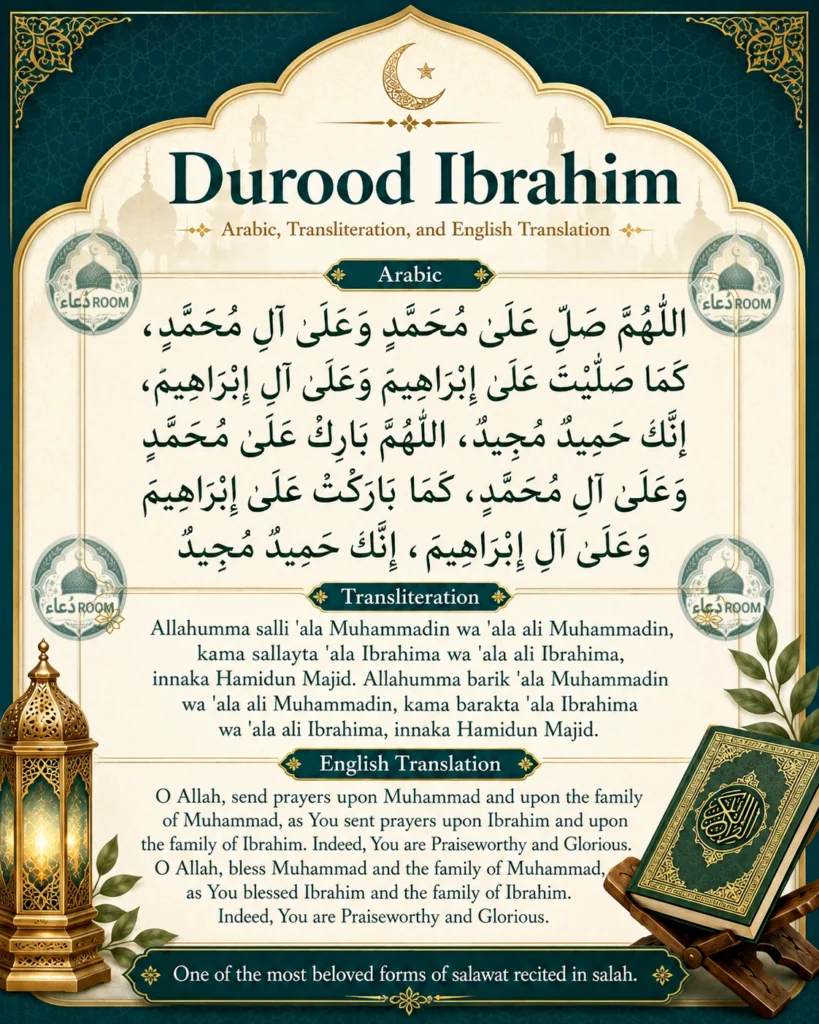 Durood Ibrahim
Arabic, Transliteration, and English Translation
دُعاء ROOM
دُعاء ROOM
Arabic
اللّٰهُمَّ صَلِّ عَلَىٰ مُحَمَّدٍ وَعَلَىٰ آلِ مُحَمَّدٍ،
كَمَا صَلَّيْتَ عَلَىٰ إِبْرَاهِيمَ وَعَلَىٰ آلِ إِبْرَاهِيمَ،
إِنَّكَ حَمِيدٌ مُجِيدٌ، اللّٰهُمَّ بَارِكْ عَلَىٰ مُحَمَّدٍ
وَعَلَىٰ آلِ مُحَمَّدٍ، كَمَا بَارَكْتْ عَلَىٰ إِبْرَاهِيمَ
وَعَلَىٰ آلِ إِبْرَاهِيمَ، إِنَّكَ حَمِيدٌ مُجِيدٌ
دُعاء ROOM
دُعاء ROOM
Transliteration
Allahumma salli 'ala Muhammadin wa 'ala ali Muhammadin,
kama sallayta 'ala Ibrahima wa 'ala ali Ibrahima,
innaka Hamidun Majid. Allahumma barik 'ala Muhammadin
wa 'ala ali Muhammadin, kama barakta 'ala Ibrahima
wa 'ala ali Ibrahima, innaka Hamidun Majid.
English Translation
O Allah, send prayers upon Muhammad and upon the family
of Muhammad, as You sent prayers upon Ibrahim and upon
the family of Ibrahim. Indeed, You are Praiseworthy and Glorious.
O Allah, bless Muhammad and the family of Muhammad,
as You blessed Ibrahim and the family of Ibrahim.
Indeed, You are Praiseworthy and Glorious.
One of the most beloved forms of salawat recited in salah.